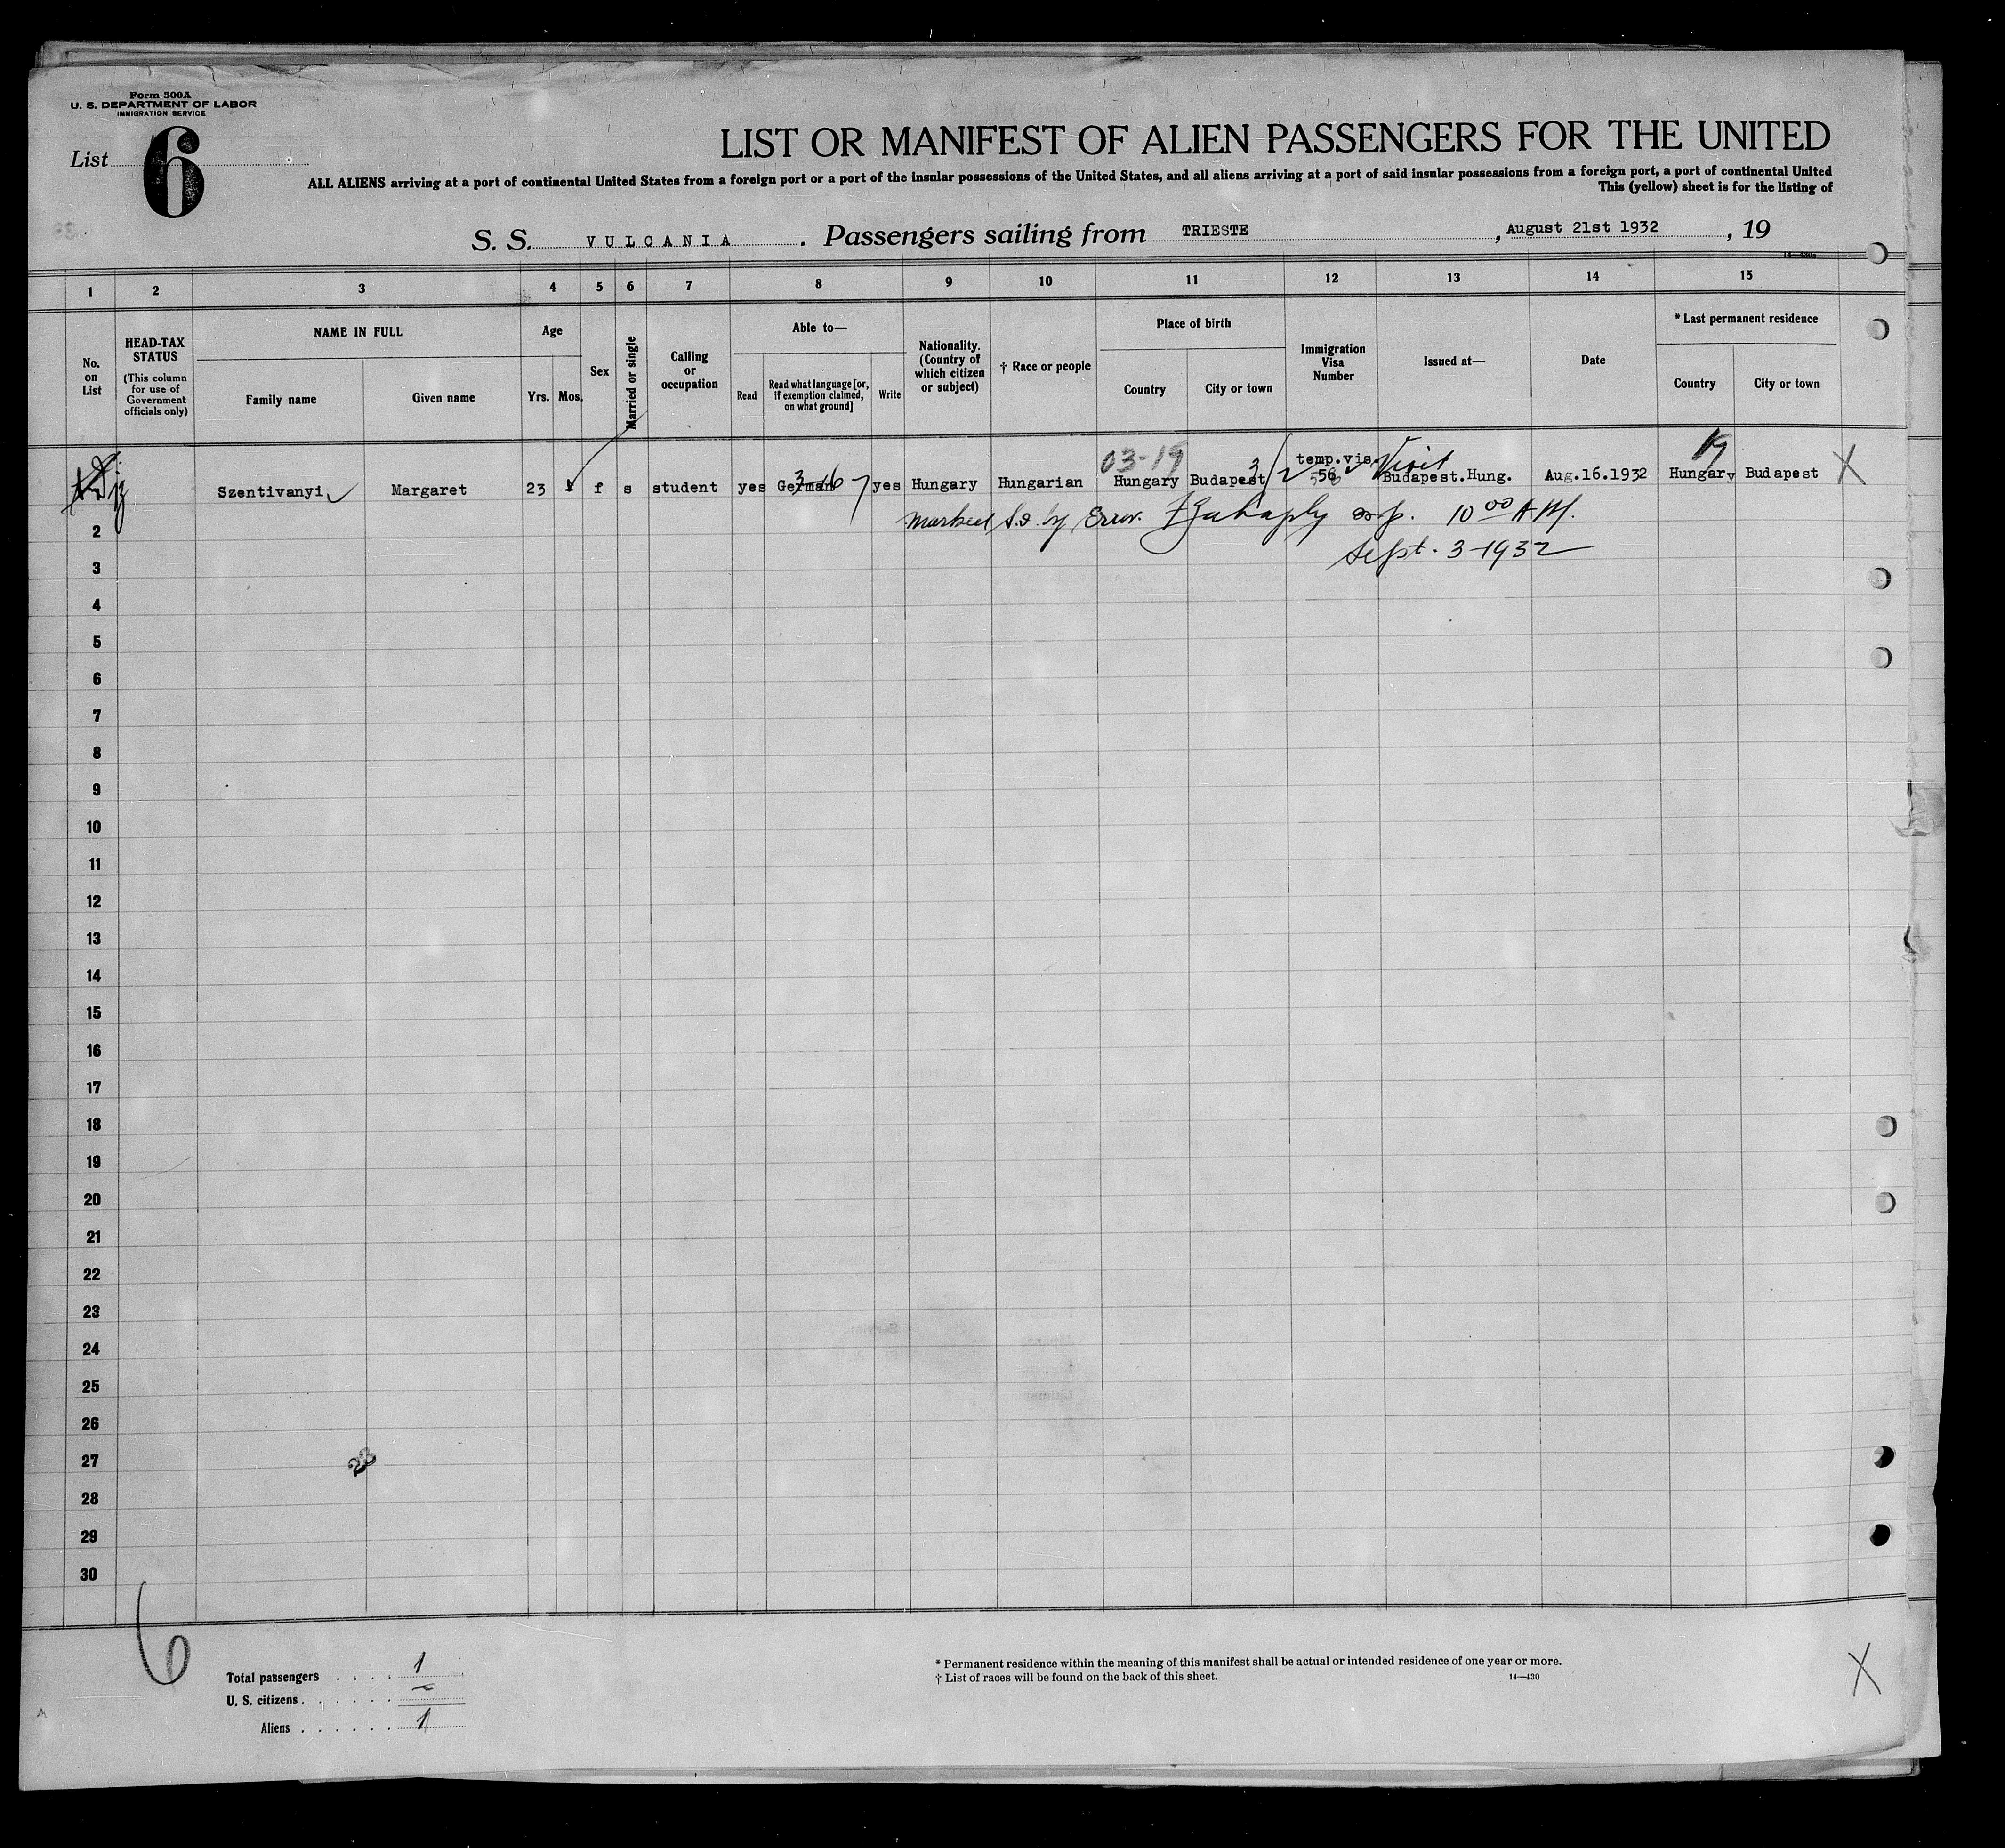 Form 500A
U. S. DEPARTMENT OF LABOR
IMMIGRATION SERVICE
List 6
LIST OR MANIFEST OF ALIEN PASSENGERS FOR THE UNITED
ALL ALIENS arriving at a port of continental United States from a foreign port or a port of the insular possessions of the United States, and all aliens arriving at a port of said insular possessions from a foreign port, a port of continental United
This (yellow) sheet is for the listing of
S. S. VULCANIA. Passengers sailing from TRIESTE, August 21st 1932, 19
1 2 3 4 5 6 7 8 9 10 11 12 13 14 15
No. on List
HEAD-TAX STATUS
(This column for use of Government officials only)
NAME IN FULL
Family name
Given name
Age
Yrs. Mos.
Sex
Married or single
Calling or occupation
Able to—
Read
Read what language [or, if exemption claimed, on what ground]
Write
Nationality. (Country of which citizen or subject)
† Race or people
Place of birth
Country
City or town
Immigration Visa Number
Issued at—
Date
* Last permanent residence
Country
City or town
03-19 3 temp.vis. Visit 19
Szentivanyi Margaret 23 f s student yes German yes Hungary Hungarian Hungary Budapest Budapest.Hung. Aug.16.1932 Hungary Budapest X
marked S.I. by Error. 10 00 A M.
Sept. 3-1932
2
3
4
5
6
7
8
9
10
11
12
13
14
15
16
17
18
19
20
21
22
23
24
25
26
27
28
29
30
6
Total passengers . . . . 1
U. S. citizens . . . . . . –
Aliens . . . . . . 1
* Permanent residence within the meaning of this manifest shall be actual or intended residence of one year or more.
† List of races will be found on the back of this sheet.
14—430
X